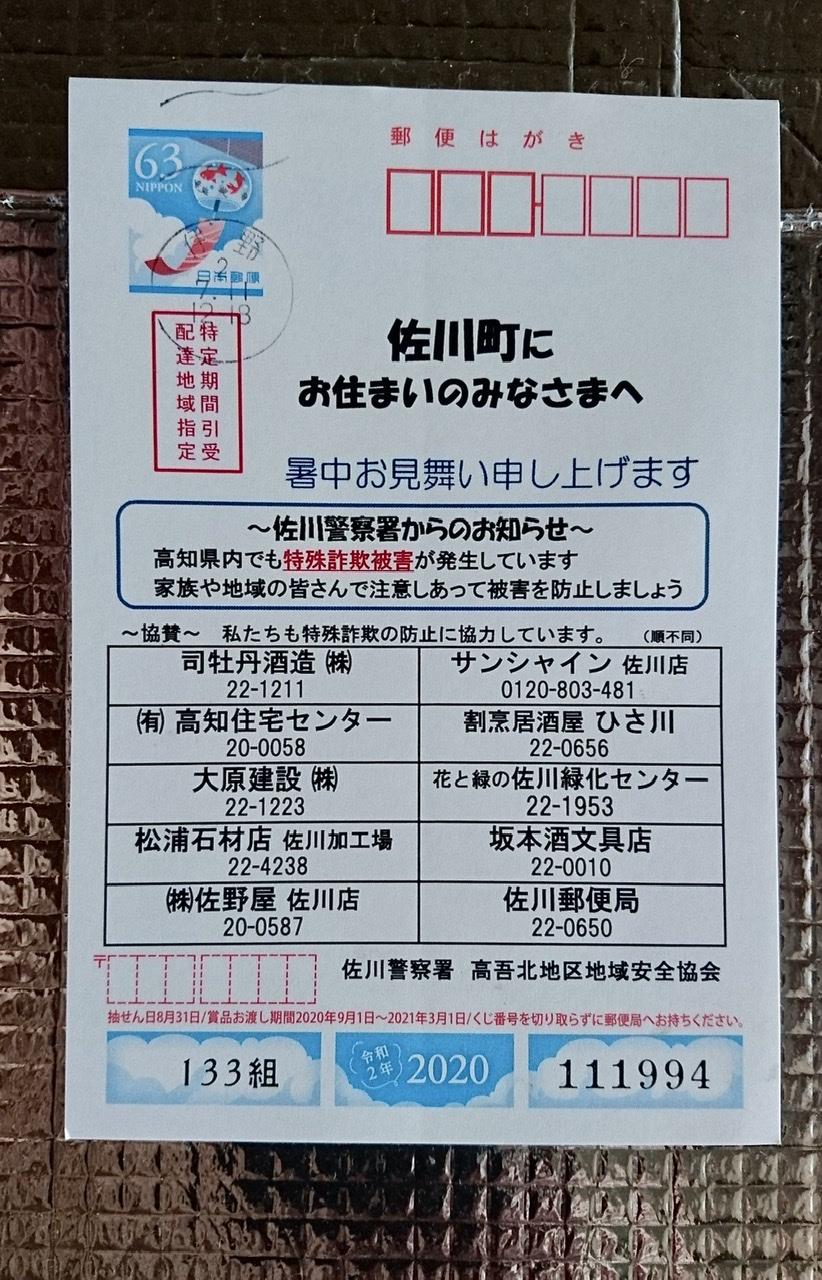 郵便はがき
63
NIPPON
日本郵便
伊野
2
7.11
12-18
特定期間引受
配達地域指定
佐川町に
お住まいのみなさまへ
暑中お見舞い申し上げます
～佐川警察署からのお知らせ～
高知県内でも特殊詐欺被害が発生しています
家族や地域の皆さんで注意しあって被害を防止しましょう
～協賛～　私たちも特殊詐欺の防止に協力しています。　（順不同）
司牡丹酒造 ㈱
22-1211
サンシャイン 佐川店
0120-803-481
㈲ 高知住宅センター
20-0058
割烹居酒屋 ひさ川
22-0656
大原建設 ㈱
22-1223
花と緑の佐川緑化センター
22-1953
松浦石材店 佐川加工場
22-4238
坂本酒文具店
22-0010
㈱佐野屋 佐川店
20-0587
佐川郵便局
22-0650
〒
佐川警察署　高吾北地区地域安全協会
抽せん日8月31日/賞品お渡し期間2020年9月1日～2021年3月1日/くじ番号を切り取らずに郵便局へお持ちください。
133組
令和2年
2020
111994